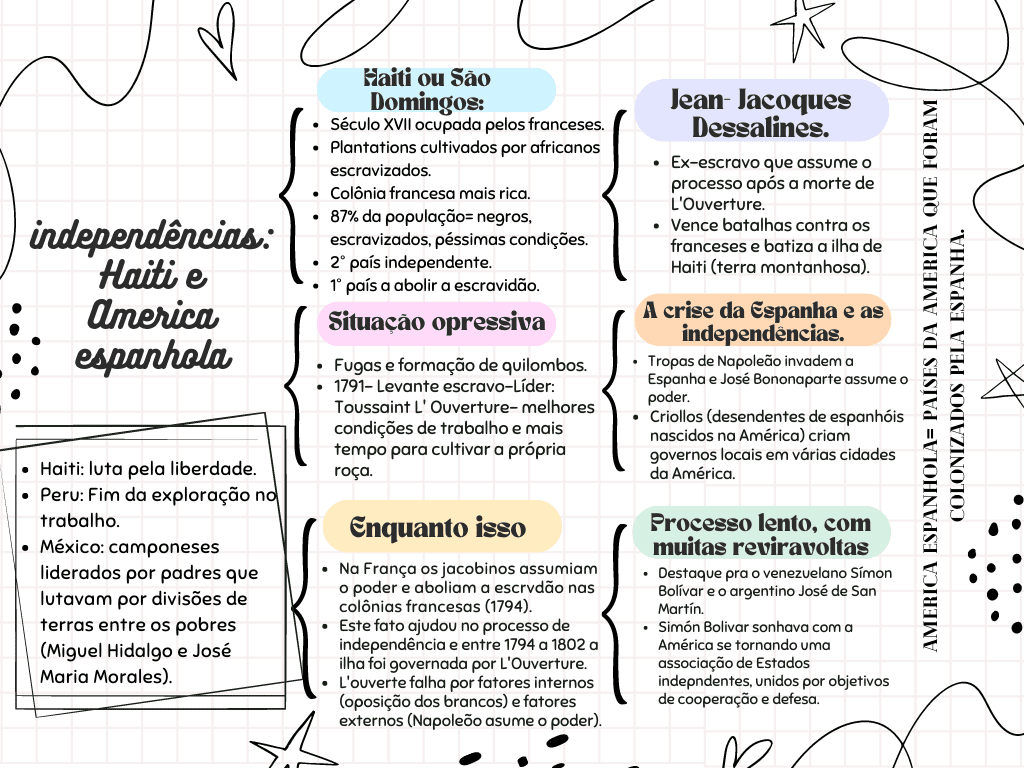 independências:
Haiti e
America
espanhola
• Haiti: luta pela liberdade.
• Peru: Fim da exploração no
trabalho.
• México: camponeses
liderados por padres que
lutavam por divisões de
terras entre os pobres
(Miguel Hidalgo e José
Maria Morales).
Haiti ou São
Domingos:
• Século XVII ocupada pelos franceses.
• Plantations cultivados por africanos
escravizados.
• Colônia francesa mais rica.
• 87% da população= negros,
escravizados, péssimas condições.
• 2° país independente.
• 1° país a abolir a escravidão.
Situação opressiva
• Fugas e formação de quilombos.
• 1791- Levante escravo-Líder:
Toussaint L' Ouverture- melhores
condições de trabalho e mais
tempo para cultivar a própria
roça.
Enquanto isso
• Na França os jacobinos assumiam
o poder e aboliam a escrvdão nas
colônias francesas (1794).
• Este fato ajudou no processo de
independência e entre 1794 a 1802 a
ilha foi governada por L'Ouverture.
• L'ouverte falha por fatores internos
(oposição dos brancos) e fatores
externos (Napoleão asume o poder).
Jean- Jacoques
Dessalines.
• Ex-escravo que assume o
processo após a morte de
L'Ouverture.
• Vence batalhas contra os
franceses e batiza a ilha de
Haiti (terra montanhosa).
A crise da Espanha e as
independências.
• Tropas de Napoleão invadem a
Espanha e José Bononaparte assume o
poder.
• Criollos (desendentes de espanhóis
nascidos na América) criam
governos locais em várias cidades
da América.
Processo lento, com
muitas reviravoltas
• Destaque pra o venezuelano Símon
Bolívar e o argentino José de San
Martín.
• Simón Bolivar sonhava com a
América se tornando uma
associação de Estados
indepndentes, unidos por objetivos
de cooperação e defesa.
AMERICA ESPANHOLA= PAÍSES DA AMERICA QUE FORAM
COLONIZADOS PELA ESPANHA.